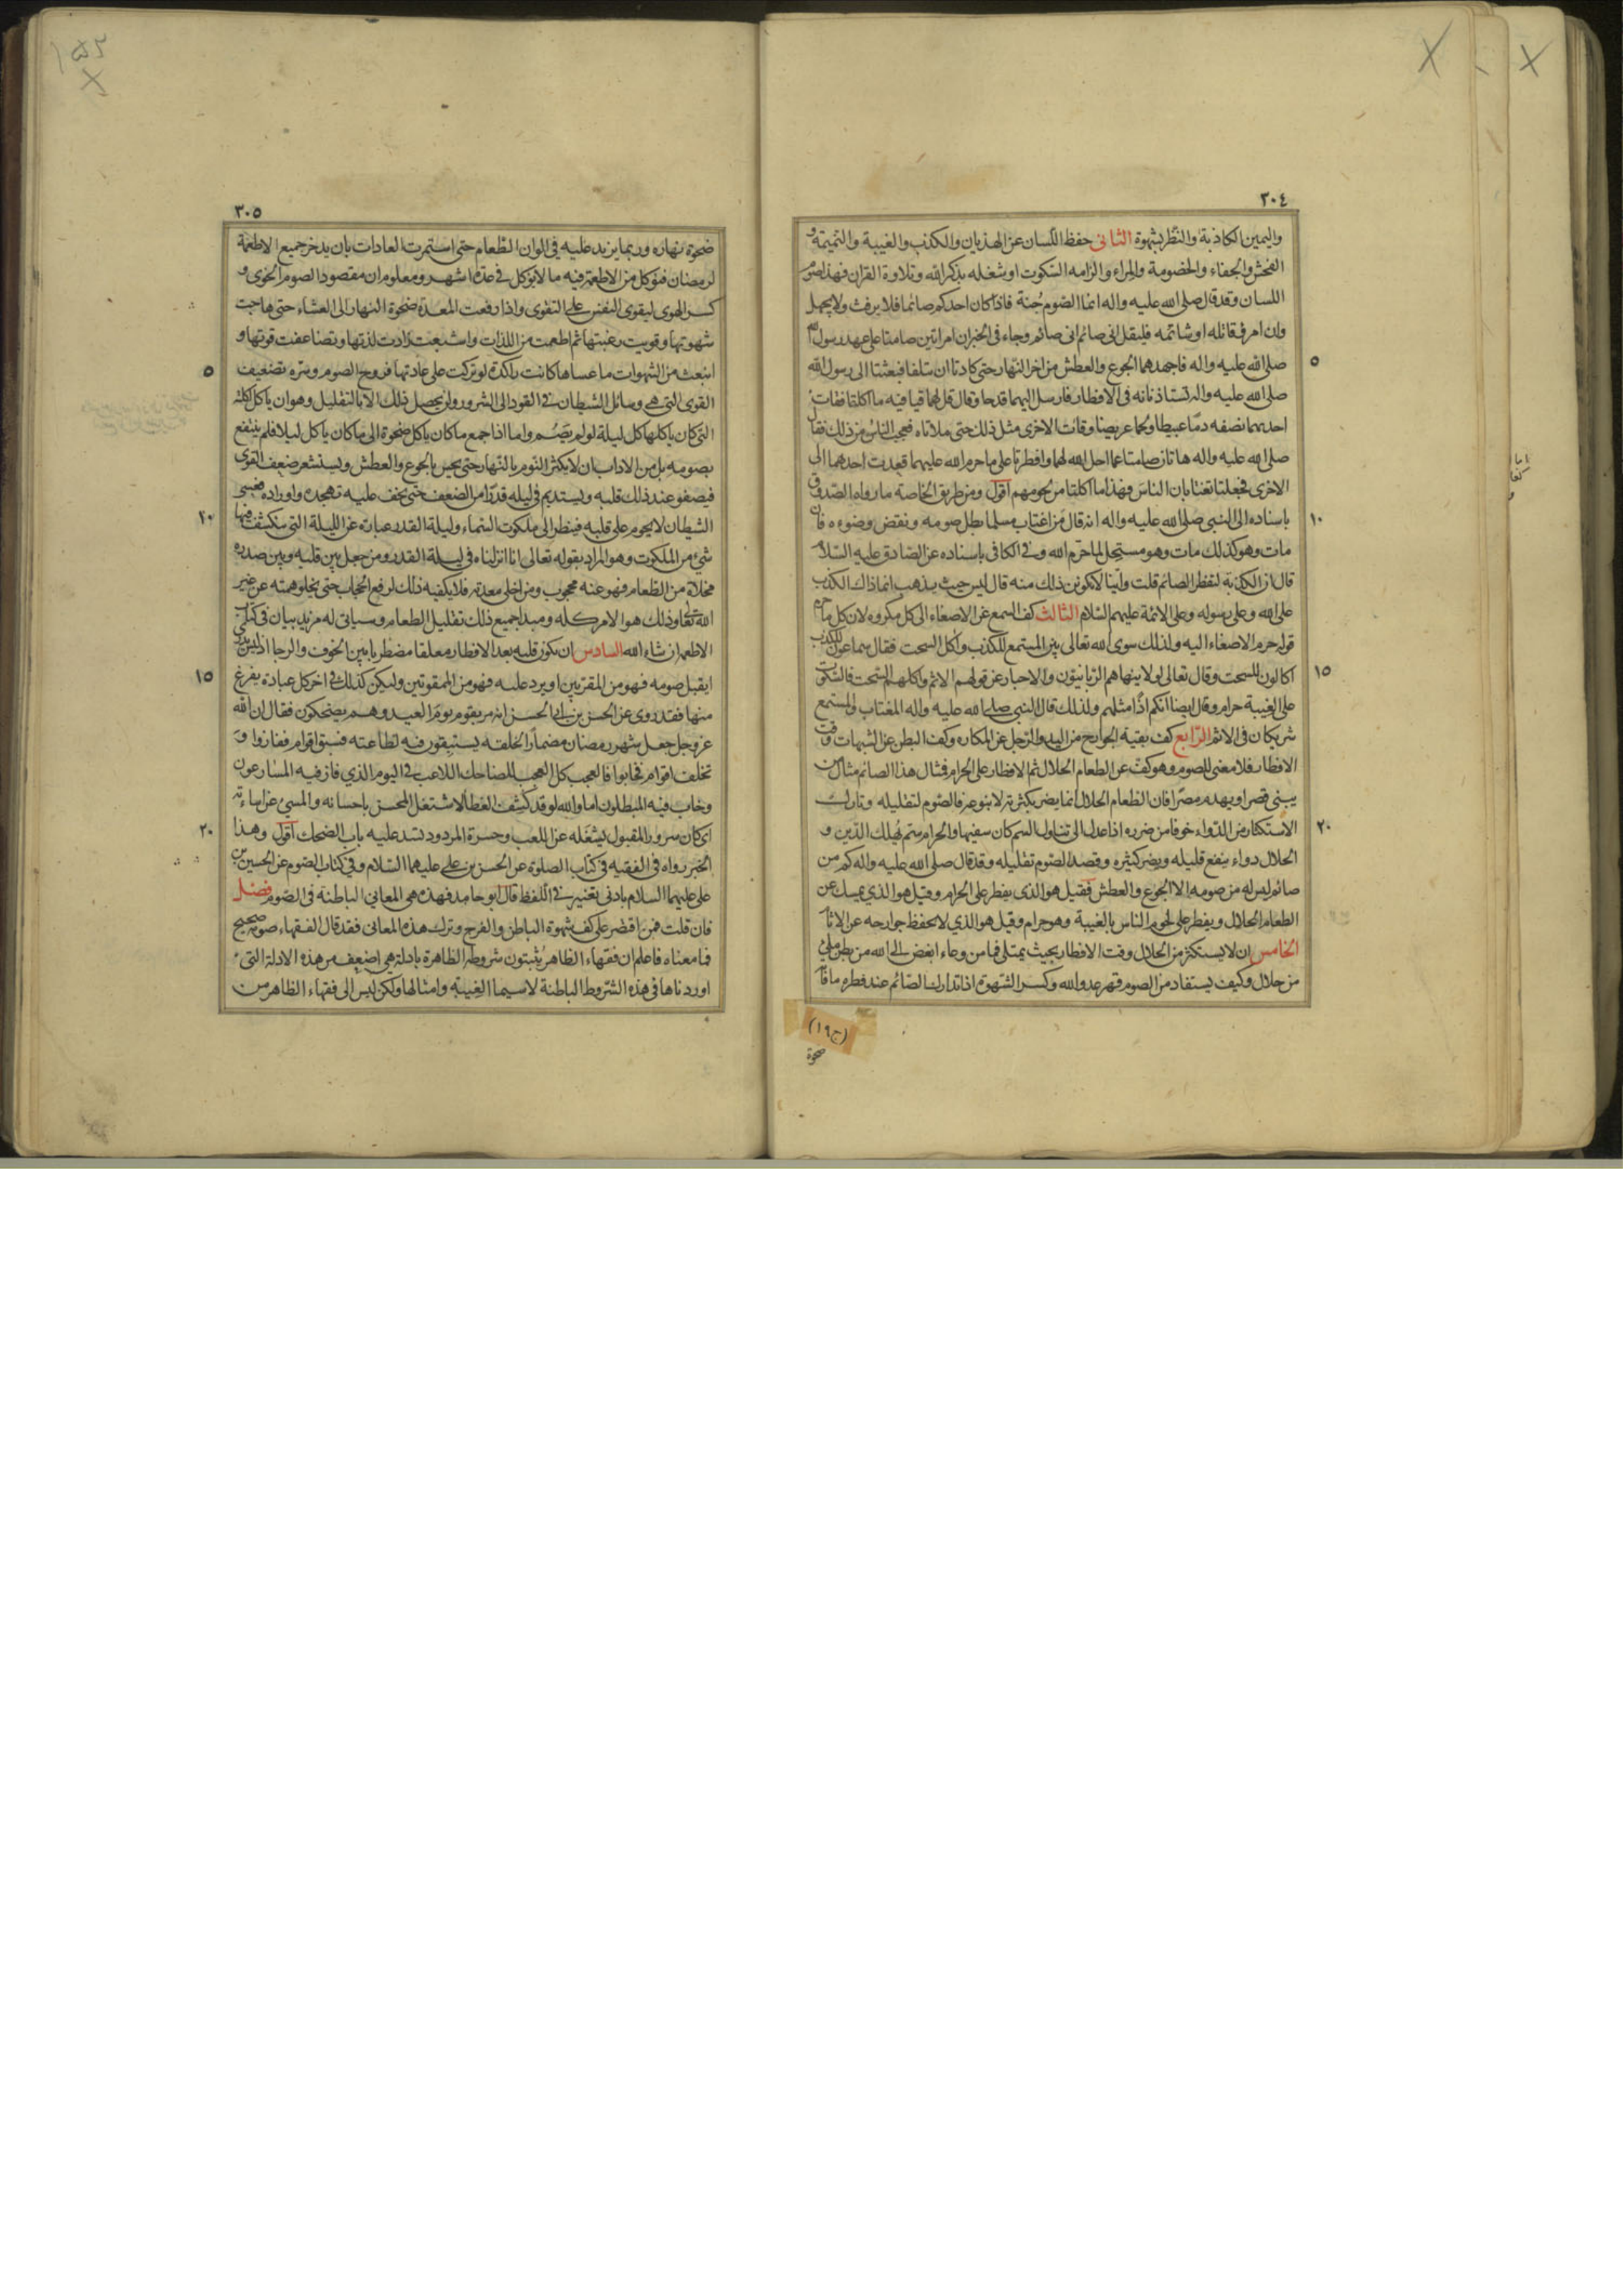 ٣٠٤
واليمين الكاذبة والنظر بشهوة الثانى حفظ اللسان عن الهذيان والكذب والغيبة والنميمة و
الفحش والجفاء والخصومة والمراء والزامه السكوت او شغله بذكر الله وتلاوة القران فهذا صوم
اللسان وقد قال صلى الله عليه واله انما الصوم جُنة فاذا كان احدكم صائما فلا يرفث ولا يجهل
وان امرؤ قاتله او شاتمه فليقل انى صائم انى صائم وجاء فى الخبر ان امراتين صامتا على عهد رسول الله
٥
صلى الله عليه واله فاجهدهما الجوع والعطش من اخر النهار حتى كادتا ان تتلفا فبعثتا الى رسول الله
صلى الله عليه واله تستاذنانه فى الافطار فارسل اليهما قدحا وقال قل لهما قيا فيه ما اكلتما فقائت
احديهما نصفه دما عبيطا ولحما عريضا وقائت الاخرى مثل ذلك حتى ملاتاه فعجب الناس من ذلك فقال
صلى الله عليه واله هاتان صامتا عما احل الله لهما وافطرتا على ما حرم الله عليهما قعدت احدهما الى
الاخرى فجعلتا تغتابان الناس فهذا ما اكلتا من لحومهم اقول ومن طريق الخاصة ما رواه الصدوق
١٠
باسناده الى النبى صلى الله عليه واله انه قال من اغتاب مسلما بطل صومه ونقض وضوءه فان
مات وهو كذلك مات وهو مستحل لما حرم الله وفى الكافى باسناده عن الصادق عليه السلام
قال ان الكذبة لتفطر الصائم قلت واينا لا يكون ذلك منه قال ليس حيث يذهب انما ذاك الكذب
على الله وعلى رسوله وعلى الائمة عليهم السلام الثالث كف السمع عن الاصغاء الى كل مكروه لان كل ما حرم
قوله حرم الاصغاء اليه ولذلك سوى الله تعالى بين المستمع للكذب واكل السحت فقال سماعون للكذب
١٥
اكالون للسحت وقال تعالى لولا ينهاهم الربانيون والاحبار عن قولهم الاثم واكلهم السحت فالسكوت
على الغيبة حرام وقال ايضا انكم اذًا مثلهم ولذلك قال النبى صلى الله عليه واله المغتاب والمستمع
شريكان فى الاثم الرابع كف بقية الجوارح من اليد والرجل عن المكاره وكف البطن عن الشبهات وقت
الافطار فلا معنى للصوم وهو كف عن الطعام الحلال ثم الافطار على الحرام فمثال هذا الصائم مثال من
يبنى قصرا ويهدم مصرا فان الطعام الحلال انما يضر بكثرته لا بنوعه فالصوم لتقليله وتارك
٢٠
الاستكثار من الدواء خوفا من ضرره اذا عدل الى تناول السم كان سفيها والحرام سم مُهلك الدين و
الحلال دواء ينفع قليله ويضر كثيره وقصد الصوم تقليله وقد قال صلى الله عليه واله كم من
صائم ليس له من صومه الا الجوع والعطش فقيل هو الذى يفطر على الحرام وقيل هو الذى يمسك عن
الطعام الحلال ويفطر على لحوم الناس بالغيبة وهو حرام وقيل هو الذى لا يحفظ جوارحه عن الاثام
الخامس ان لا يستكثر من الحلال وقت الافطار بحيث يمتلى فما من وعاء ابغض الى الله من بطن ملئ
من حلال وكيف يستفاد من الصوم قهر عدو الله وكسر الشهوة اذا تدارك الصائم عند فطره ما فاته
(ج١٩)
ضحوة
٣٠٥
ضحوة نهاره وربما يزيد عليه فى الوان الطعام حتى استمرت العادات بان يدخر جميع الاطعمة
لرمضان فيؤكل من الاطعمة فيه ما لا يؤكل فى عدة اشهر ومعلوم ان مقصود الصوم الخوى و
كسر الهوى ليقوى النفس على التقوى واذا دفعت المعدة ضحوة النهار الى العشاء حتى هاجت
شهوتها وقويت رغبتها ثم اطعمت من اللذات واشبعت زادت لذتها وتضاعفت قوتها و
٥
انبعث من الشهوات ما عساها كانت راكدة لو تركت على عادتها فروح الصوم وسره تضعيف
القوى التى هى وسائل الشيطان فى القود الى الشرور ولن يحصل ذلك الا بالتقليل وهو ان ياكل اكلته
التى كان ياكلها كل ليلة لو لم يَصُم واما اذا جمع ما كان ياكل ضحوة الى ما كان ياكل ليلا فلم ينتفع
بصومه بل من الاداب ان لا يكثر النوم بالنهار حتى يحس بالجوع والعطش ويستشعر ضعف القوى
فيصفو عند ذلك قلبه ويستديم فى ليله قدرا من الضعف حتى يخف عليه تهجده واوراده فعسى
٢٠
الشيطان لا يحوم على قلبه فينظر الى ملكوت السماء وليلة القدر عبارة عن الليلة التى ينكشف فيها
شئ من الملكوت وهو المراد بقوله تعالى انا انزلناه فى ليلة القدر ومن جعل بين قلبه وبين صدره
مخلاة من الطعام فهو عنه محجوب ومن اخلى معدته فلا يكفيه ذلك لرفع الحجاب حتى يخلو همته عن غير
الله تعالى وذلك هو الامر كله ومبدا جميع ذلك تقليل الطعام وسياتى له مزيد بيان فى كتاب
الاطعمة ان شاء الله السادس ان يكون قلبه بعد الافطار معلقا مضطربا بين الخوف والرجا اذ ليس يدرى
١٥
ايقبل صومه فهو من المقربين او يرد عليه فهو من الممقوتين وليكن كذلك فى اخر كل عبادة يفرغ
منها فقد روى عن الحسن بن ابى الحسن انه مر بقوم يوم العيد وهم يضحكون فقال ان الله
عز وجل جعل شهر رمضان مضمارًا لخلقه يستبقون فيه لطاعته فسبق اقوام ففازوا و
تخلف اقوام فخابوا فالعجب كل العجب للضاحك اللاعب فى اليوم الذى فاز فيه المسارعون
وخاب فيه المبطلون اما والله لو قد كشف الغطا لاشتغل المحسن باحسانه والمسئ عن اساءته
٢٠
اى كان سرور المقبول يشغله عن اللعب وحسرة المردود تسد عليه باب الضحك اقول وهذا
الخبر رواه فى الفقيه فى كتاب الصلوة عن الحسن بن على عليهما السلام وفى كتاب الصوم عن الحسين بن
على عليهما السلام بادنى تغيير فى اللفظ قال ابو حامد فهذه هى المعانى الباطنة فى الصوم فصل
فان قلت فمن اقتصر على كف شهوة الباطن والفرج وترك هذه المعانى فقد قال الفقهاء صومه صحيح
فما معناه فاعلم ان فقهاء الظاهر يُثبتون شروط الظاهرة بادلة هى اضعف من هذه الادلة التى
اوردناها فى هذه الشروط الباطنة لا سيما الغيبة وامثالها ولكن ليس الى فقهاء الظاهر من